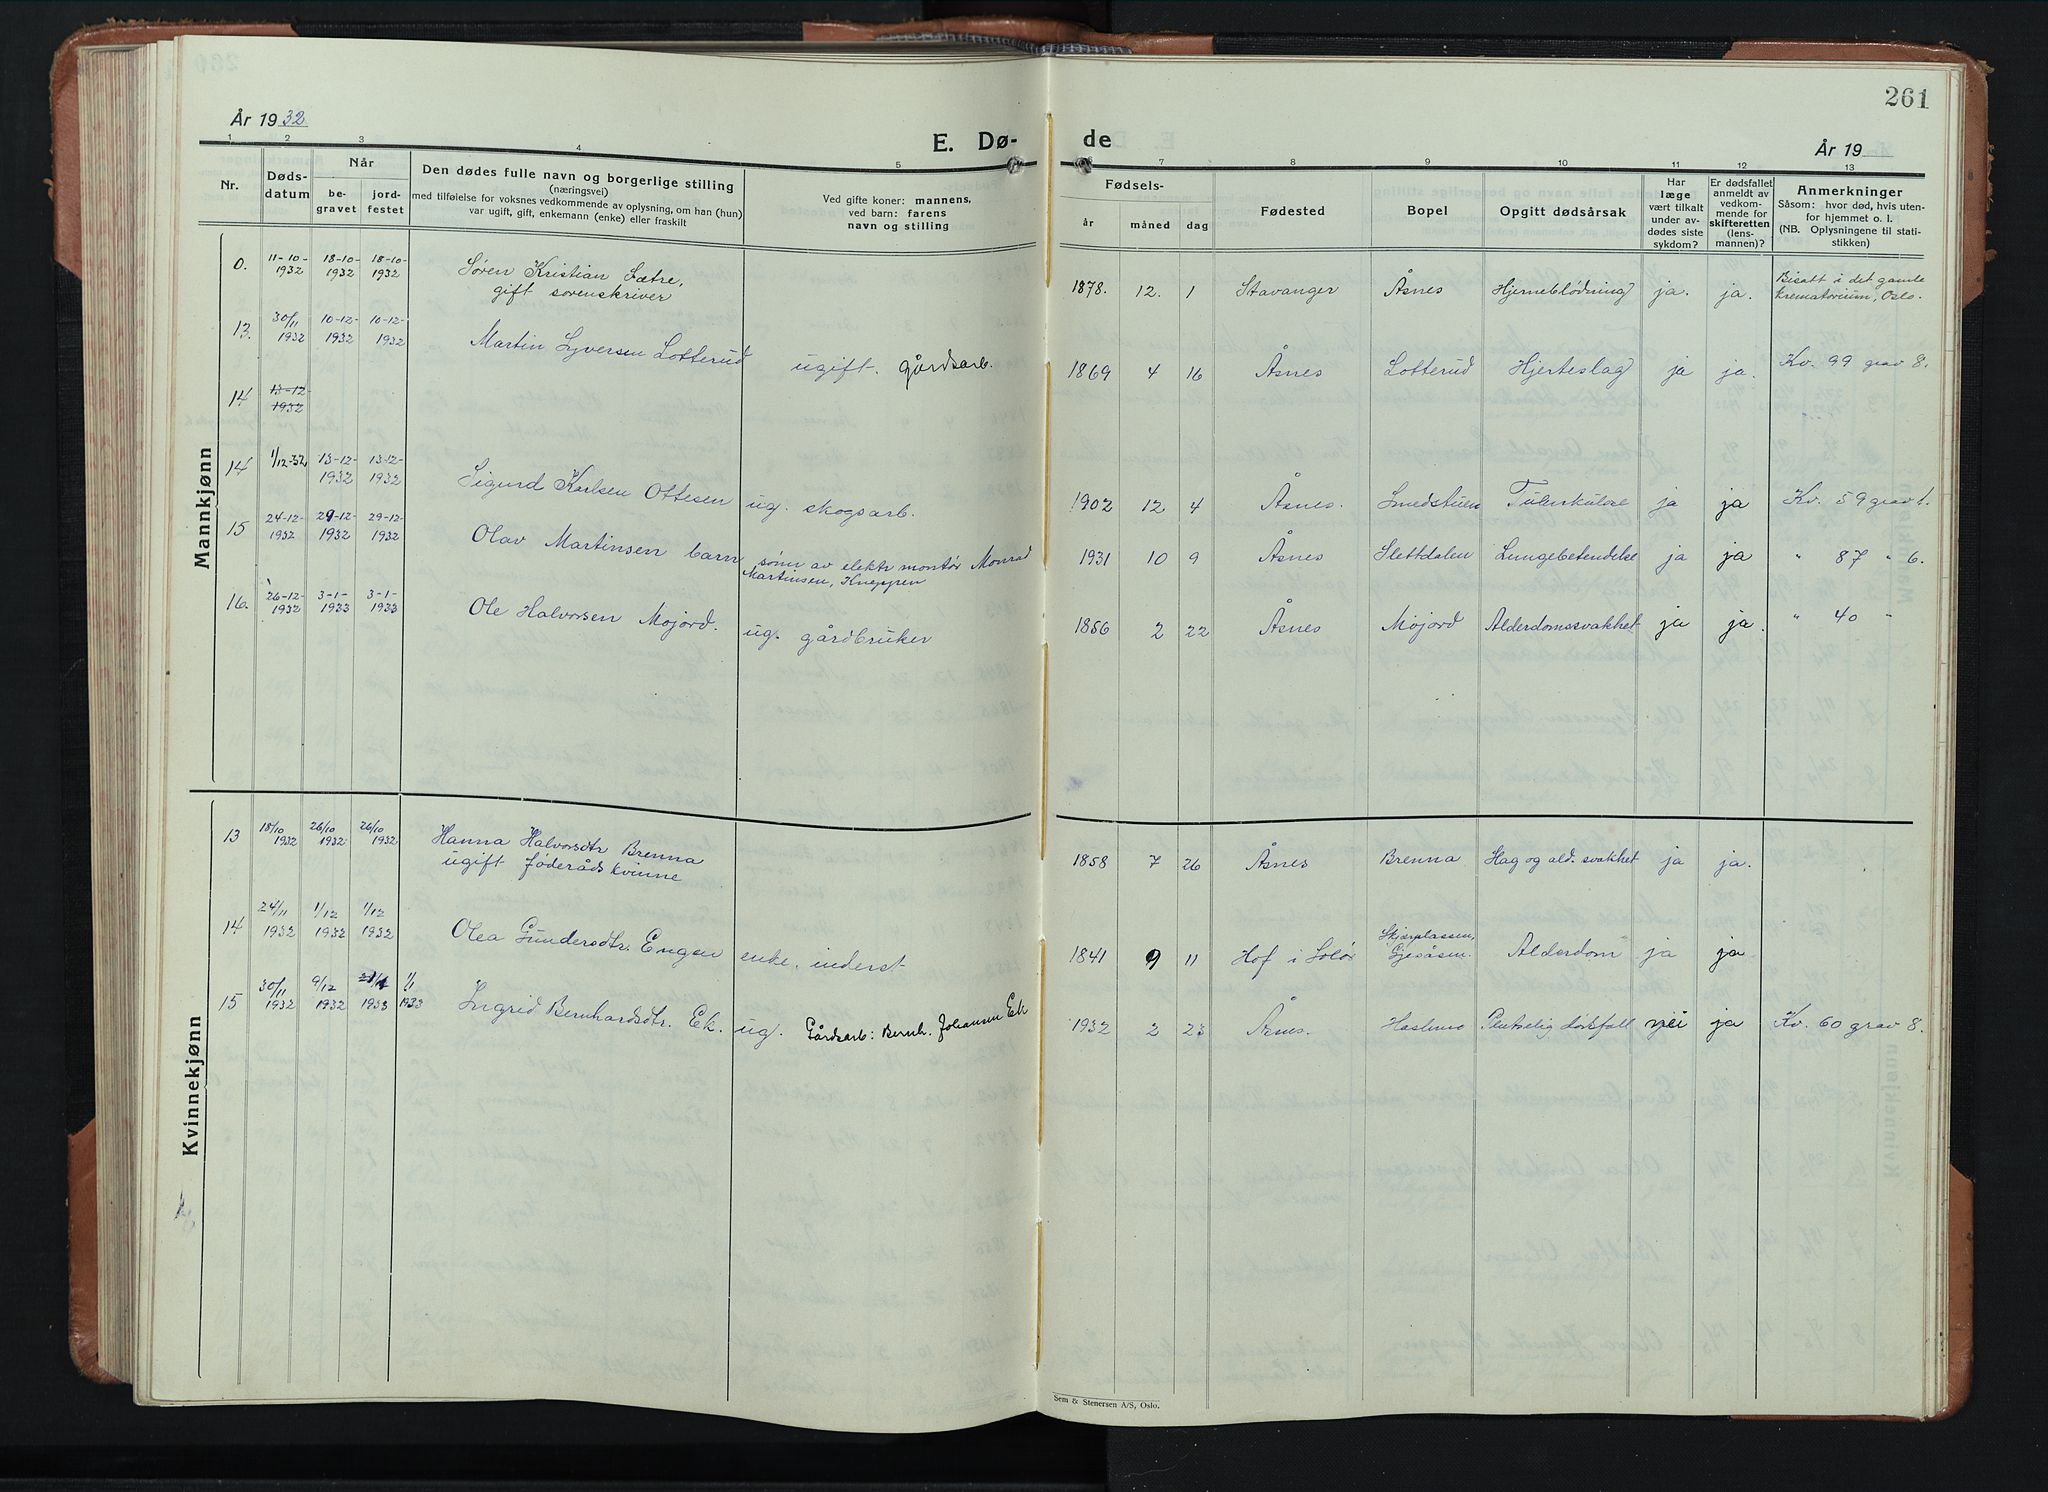 261
År 1932
E. Dø-
de
År 19
1 2 3 4 5 6 7 8 9 10 11 12 13
Nr.
Døds-
datum
Når
be-
gravet
jord-
festet
Den dødes fulle navn og borgerlige stilling
(næringsvei)
med tilføielse for voksnes vedkommende av oplysning, om han (hun)
var ugift, gift, enkemann (enke) eller fraskilt
Ved gifte koner: mannens,
ved barn: farens
navn og stilling
Fødsels-
år måned dag
Fødested
Bopel
Opgitt dødsårsak
Har
læge
vært tilkalt
under av-
dødes siste
sykdom?
Er dødsfallet
anmeldt av
vedkom-
mende for
skifteretten
(lens-
mannen)?
Anmerkninger
Såsom: hvor død, hvis uten-
for hjemmet o. l.
(NB. Oplysningene til stati-
stikken)
Mannkjønn
0. 11-10-1932 18-10-1932 18-10-1932 Søren Kristian Sætre, gift sorenskriver 1878. 12. 1 Stavanger Åsnes Hjerneblødning ja. ja. Bisatt i det gamle krematorium, Oslo.
13. 30/11 1932 10-12-1932 10-12-1932 Martin Syversen Lotterud ugift. gårdsarb. 1869 4 16 Åsnes Lotterud Hjerteslag ja ja. Kv. 99 grav 8.
14 13-12-1932
14 1/12-32 13-12-1932 13-12-1932 Sigurd Karlsen Ottesen ug. skogsarb. 1902 12 4 Åsnes. Smedstuen Tuberkulose ja ja Kv. 59 grav 1.
15 24-12-1932 29-12-1932 29-12-1932 Olav Martinsen barn sønn av elektr montør Monrad Martinsen, Kneppen 1931 10 9 Åsnes Slettdalen Lungebetendelse ja ja " 87 " 6.
16. 26-12-1932 3-1-1933 3-1-1933 Ole Halvorsen Møjord. ug. gårdbruker 1856 2 22 Åsnes Møjord Alderdomssvakhet ja ja. " 40 "
Kvinnekjønn
13 18/10 1932 26/10 1932 26/10 1932 Hanna Halvorsdtr Brenna ugift føderådskvinne 1858 7 26 Åsnes Brenna Hag og ald. svakhet ja ja.
14 24/11 1932 1/12 1932 1/12 1932 Olea Gundersdtr. Engen enke, inderst 1841 9 11 Hof i Solør Skjærplassen, Gjesåsen. Alderdom ja ja
15 30/11 1932 9/12 1932 1933 1/1 1933 Ingrid Bernhardsdtr. Ek. ug. Gårdsarb: Bernh. Johansen Ek 1932 2 23 Åsnes. Haslemo Plutselig dødsfall nei ja Kv. 60 grav 8.
Sem & Stenersen A/S, Oslo.